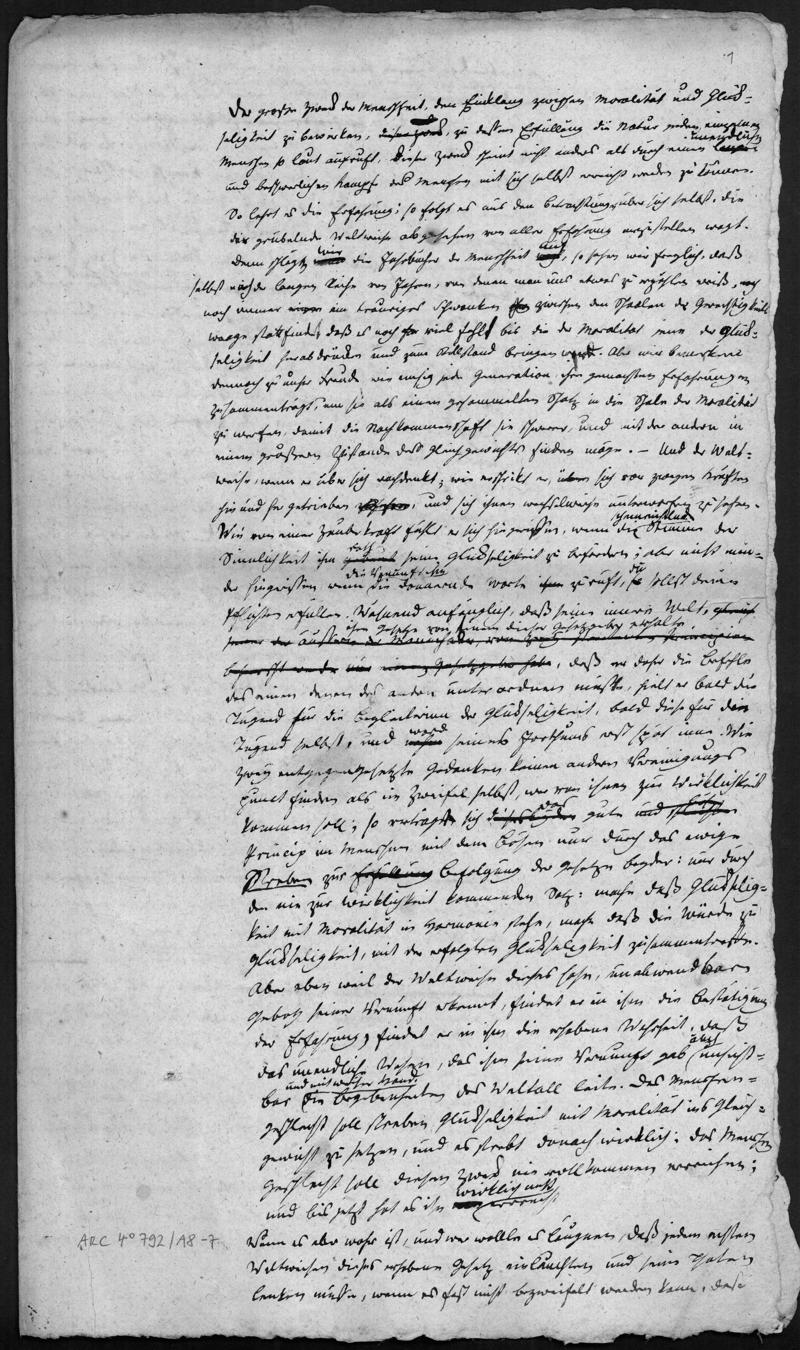 1
Der große Zweck der Menschheit, den Einklang zwischen Moralität und Glück-
seligkeit zu bewirken, dieser Zweck, zu dessen Erfüllung die Natur jeden einzelnen
Menschen so laut aufruft, dieser Zweck scheint nicht anders als durch einen unendlichen
und beschwerlichen Kampf des Menschen mit sich selbst erreicht werden zu können.
So lehrt es die Erfahrung; so folgt es aus den Betrachtungen über sich selbst, die
der grübelnde Weltweise abgesehen von aller Erfahrung anzustellen wagt.
Denn schlagen wir die Jahrbücher der Menschheit auf, so sehen wir freylich, daß
selbst nach der langen Reihe von Jahren, von denen man uns etwas zu erzählen weiß,
noch immer ein trauriges Schwanken zwischen den Schaalen der Gerechtigkeits
waage stattfindet, daß es noch viel fehlt bis die der Moralität jene der Glük-
seligkeit herabdrücken und zum Stillstand bringen. Aber wir bemerken
dennoch zu unsrer Freude wie emsig jede Generation ihre gemachten Erfahrungen
zusammenträgt, um sie als einen gesammelten Schatz in die Schale der Moralität
zu werfen, damit die Nachkommenschaft sie schwerer, und mit der andern in
einem größern Zustande des Gleichgewichts finden möge. – Und der Welt-
weise, wenn er über sich nachdenkt; wie erschrikt er, sich von zweyen Kräften
hin und her getrieben, und sich ihnen wechselweise unterworfen zu sehen.
Wie von einer Zauberkraft fühlt er sich hingerissen, wenn die schmeichelnde Stimme der
Sinnlichkeit ihm räth seine Glükseligkeit zu befördern; aber nicht min-
der hingerissen wenn die Vernunft ihm die donnernde Worte zuruft, du sollst deine
Pflichten erfüllen. Wähnend anfänglich, daß seine innere Welt,
ihre Gesetze von einem dieser Gesetzgeber erhalte,
daß er daher die Befehle
des einen denen des andern unterordnen müsste, hielt er bald die
Tugend für die Begleiterinn der Glükseligkeit, bald diese für die
Tugend selbst, und ward seines Irrthums erst spät inne. Wie
zwey entgegengesetzte Gedanken keinen andern Vereinigungs
punct finden als im Zweifel selbst, wer von ihnen zur Wirklichkeit
kommen soll; so verträgt sich das gute
Princip im Menschen mit dem Bösen nur durch das ewige
Streben zur Erfüllung Befolgung der Gesetze beyder: nur durch
den nie zur Wirklichkeit kommenden Satz: mache daß Glükselig-
keit mit Moralität in Harmonie stehe, mache daß die Würde zu
Glükseligkeit, mit der erfolgten Glükseligkeit zusammentreffe.
Aber eben weil der Weltweise dieses hohe, unabwendbare
Gebot seiner Vernunft erkennt, findet er in ihm die Bestätigung
der Erfahrung, findet er in ihm die erhabene Wahrheit, daß
das unendliche Wesen, das ihm seine Vernunft gab auch unsicht-
bar und mit weiser Hand die Begebenheiten des Weltall leite. Das Menschen-
geschlecht soll streben, Glükseligkeit mit Moralität ins Gleich-
gewicht zu setzen, und es strebt danach wirklich; das Menschen
geschlecht soll diesen Zweck nie vollkommen erreichen;
und bis jetzt hat es ihn wirklich nicht erreicht.
Wenn es aber wahr ist, und wer wollte es läugnen, daß jedem ersten
Weltweisen dieses erhabene Gesetz einleuchten und seine Thaten
lenken müsse, wenn es fast nicht bezweifelt werden kann, daß
ARC 4° 792/A8-7